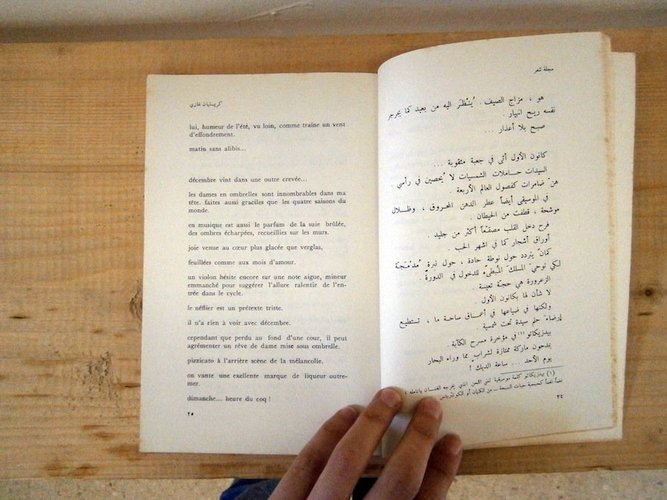 مجلة شعر
هو ، مزاج الصيف . يُنتظر اليه من بعيد كما يجرجر
نفسه ريح انهيار .
صبح بلا أعذار ...
كانون الأول أتى في جعبة مثقوبة ...
السيدات حاملات الشمسيات لا يُحصين في رأسي
هن ضامرات كفصول العالم الأربعة
في الموسيقى أيضاً عطر الدهن المحروق ، وظلال
موشحة ، قطفت من الحيطان .
فرح دخل القلب مصقعاً أكثر من جليد
أوراق أشجار كما في اشهر الحب .
كمان يتردد حول نوطة حادة ، حول نبرة مُدمَجة
لكي توحي المسلك المُبطيء للدخول في الدورة
الزعرورة هي حجة تعيسة
لا شأن لها بكانون الأول
ولكنها في ضياعها في أعماق ساحة ما ، تستطيع
إرضاء حلم سيدة تحت شمسية .
بيدزيكاتو (١) في مؤخرة مسرح الكآبة
يمدحون ماركة ممتازة لشراب مما وراء البحار
يوم الأحد ... ساعة الديك !
(١) بيدزيكاتو كلمة موسيقية تعني اللحن الذي يخرجه العـازف بأنامله
٢٤
كريستيان غازي
lui, humeur de l'été, vu loin, comme traîne un vent
d'effondrement.
matin sans alibis...
décembre vint dans une outre crevée...
les dames en ombrelles sont innombrables dans ma
tête. faites aussi graciles que les quatre saisons du
monde.
en musique est aussi le parfum de la suie brûlée,
des ombres écharpées, recueillies sur les murs.
joie venue au cœur plus glacée que verglas,
feuillées comme aux mois d'amour.
un violon hésite encore sur une note aigue, mineur
emmanché pour suggérer l'allure ralentir de l'en-
trée dans le cycle.
le néflier est un prétexte triste.
il n'a rien à voir avec décembre.
cependant que perdu au fond d'une cour, il peut
agrémenter un rêve de dame mise sous ombrelle.
pizzicato à l'arrière scène de la mélancolie.
on vante une exellente marque de liqueur outre-
mer.
dimanche... heure du coq !
٢٥